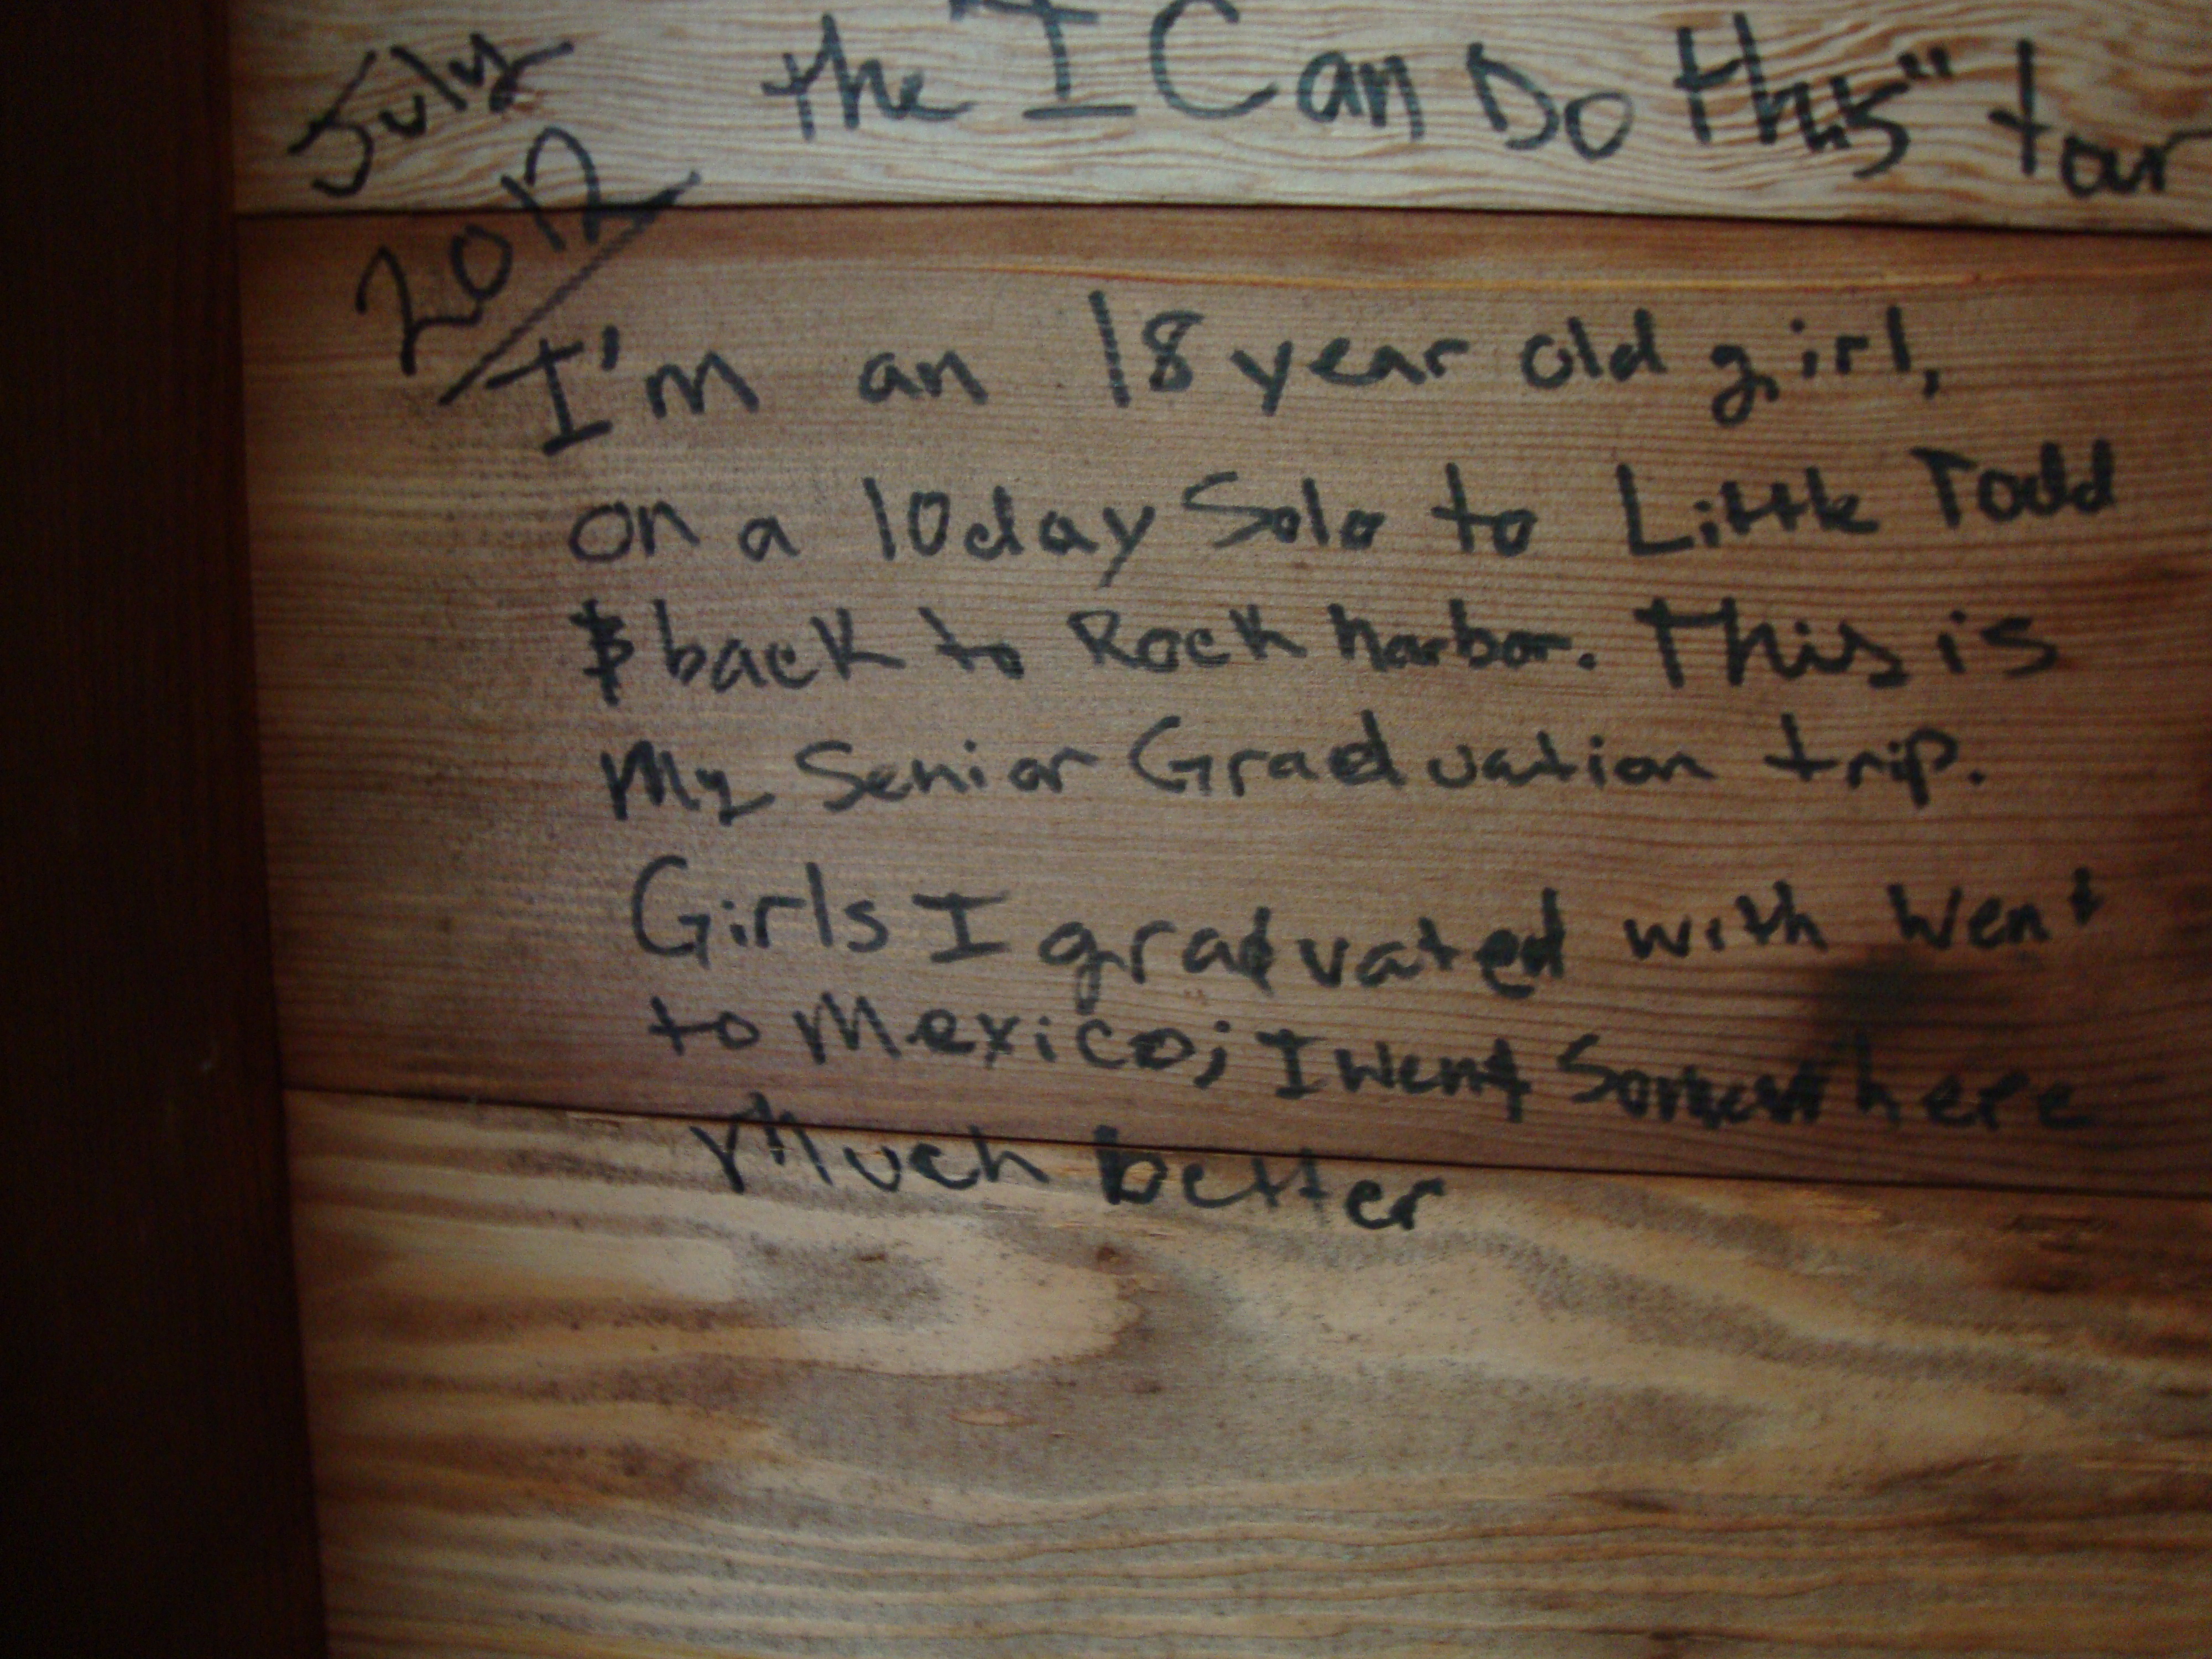 July
2012
the "I Can Do this" tour
I'm an 18 year old girl,
on a 10 day Solo to Little Todd
& back to Rock harbor. This is
My Senior Graduation trip.
Girls I graduated with went
to Mexico; I went Somewhere
Much better